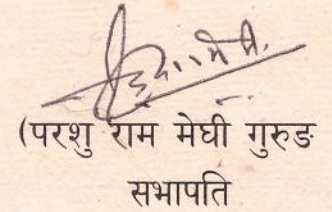 (परशु राम मेघी गुरुङ
सभापति